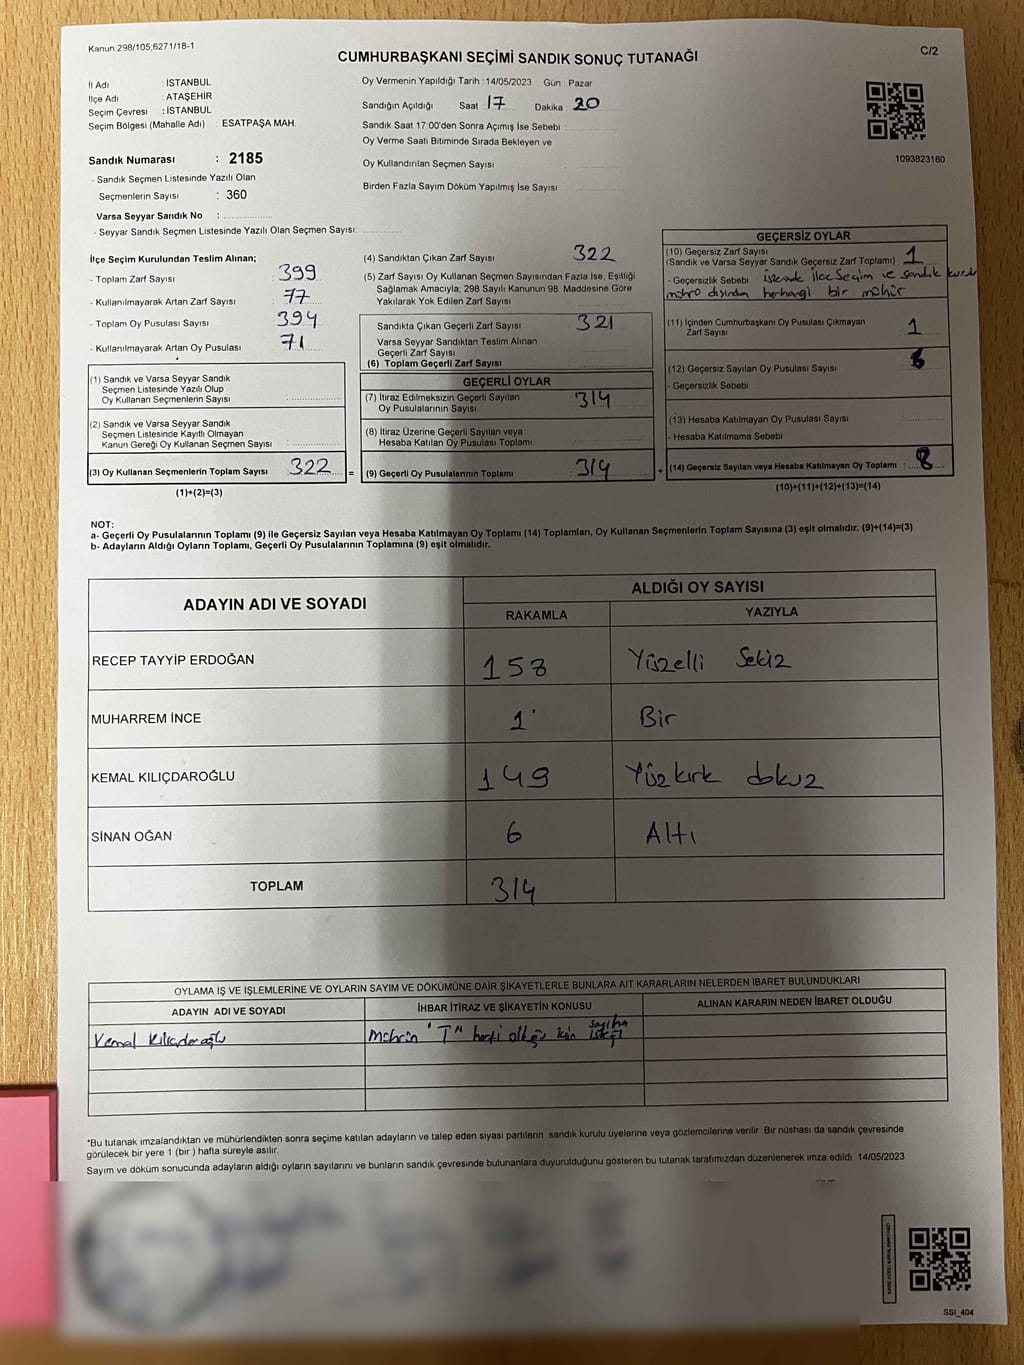 Kanun.298/105;6271/18-1
C/2
CUMHURBAŞKANI SEÇİMİ SANDIK SONUÇ TUTANAĞI
İl Adı : İSTANBUL
İlçe Adı : ATAŞEHİR
Seçim Çevresi : İSTANBUL
Seçim Bölgesi (Mahalle Adı) : ESATPAŞA MAH.
Sandık Numarası : 2185
- Sandık Seçmen Listesinde Yazılı Olan
Seçmenlerin Sayısı : 360
Varsa Seyyar Sandık No :
- Seyyar Sandık Seçmen Listesinde Yazılı Olan Seçmen Sayısı:
Oy Vermenin Yapıldığı Tarih : 14/05/2023 Gün Pazar
Sandığın Açıldığı Saat 17 Dakika 20
Sandık Saat 17:00'den Sonra Açımış İse Sebebi :
Oy Verme Saati Bitiminde Sırada Bekleyen ve
Oy Kullandırılan Seçmen Sayısı
Birden Fazla Sayım Döküm Yapılmış İse Sayısı :
1093823180
İlçe Seçim Kurulundan Teslim Alınan;
- Toplam Zarf Sayısı : 399
- Kullanılmayarak Artan Zarf Sayısı : 77
- Toplam Oy Pusulası Sayısı : 394
- Kullanılmayarak Artan Oy Pusulası : 71
(1) Sandık ve Varsa Seyyar Sandık
Seçmen Listesinde Yazılı Olup
Oy Kullanan Seçmenlerin Sayısı :
(2) Sandık ve Varsa Seyyar Sandık
Seçmen Listesinde Kayıtlı Olmayan
Kanun Gereği Oy Kullanan Seçmen Sayısı :
(3) Oy Kullanan Seçmenlerin Toplam Sayısı : 322 =
(1)+(2)=(3)
(4) Sandıktan Çıkan Zarf Sayısı 322
(5) Zarf Sayısı Oy Kullanan Seçmen Sayısından Fazla İse, Eşitliği
Sağlamak Amacıyla, 298 Sayılı Kanunun 98. Maddesine Göre
Yakılarak Yok Edilen Zarf Sayısı
Sandıkta Çıkan Geçerli Zarf Sayısı : 321
Varsa Seyyar Sandıktan Teslim Alınan
Geçerli Zarf Sayısı
(6) Toplam Geçerli Zarf Sayısı
GEÇERLİ OYLAR
(7) İtiraz Edilmeksizin Geçerli Sayılan
Oy Pusulalarının Sayısı : 314
(8) İtiraz Üzerine Geçerli Sayılan veya
Hesaba Katılan Oy Pusulası Toplamı :
(9) Geçerli Oy Pusulalarının Toplamı : 314 +
GEÇERSİZ OYLAR
(10) Geçersiz Zarf Sayısı
(Sandık ve Varsa Seyyar Sandık Geçersiz Zarf Toplamı) : 1
- Geçersizlik Sebebi : üzerinde ilce Seçim ve sandık kurulu
mührü dışından herhangi bir mühür
(11) İçinden Cumhurbaşkanı Oy Pusulası Çıkmayan
Zarf Sayısı 1
(12) Geçersiz Sayılan Oy Pusulası Sayısı : 6
- Geçersizlik Sebebi
(13) Hesaba Katılmayan Oy Pusulası Sayısı
- Hesaba Katılmama Sebebi
(14) Geçersiz Sayılan veya Hesaba Katılmayan Oy Toplamı : 8
(10)+(11)+(12)+(13)=(14)
NOT:
a- Geçerli Oy Pusulalarının Toplamı (9) ile Geçersiz Sayılan veya Hesaba Katılmayan Oy Toplamı (14) Toplamları, Oy Kullanan Seçmenlerin Toplam Sayısına (3) eşit olmalıdır. (9)+(14)=(3)
b- Adayların Aldığı Oyların Toplamı, Geçerli Oy Pusulalarının Toplamına (9) eşit olmalıdır.
ADAYIN ADI VE SOYADI
ALDIĞI OY SAYISI
RAKAMLA YAZIYLA
RECEP TAYYİP ERDOĞAN 158 Yüzelli Sekiz
MUHARREM İNCE 1 Bir
KEMAL KILIÇDAROĞLU 149 Yüzkırk dokuz
SİNAN OĞAN 6 Altı
TOPLAM 314
OYLAMA İŞ VE İŞLEMLERİNE VE OYLARIN SAYIM VE DÖKÜMÜNE DAİR ŞİKAYETLERLE BUNLARA AİT KARARLARIN NELERDEN İBARET BULUNDUKLARI
ADAYIN ADI VE SOYADI İHBAR İTİRAZ VE ŞİKAYETİN KONUSU ALINAN KARARIN NEDEN İBARET OLDUĞU
Kemal Kılıçdaroğlu Mührün "T" harfi olduğu için
*Bu tutanak imzalandıktan ve mühürlendikten sonra seçime katılan adayların ve talep eden siyasi partilerin sandık kurulu üyelerine veya gözlemcilerine verilir. Bir nüshası da sandık çevresinde
görülecek bir yere 1 (bir ) hafta süreyle asılır.
Sayım ve döküm sonucunda adayların aldığı oyların sayılarını ve bunların sandık çevresinde bulunanlara duyurulduğunu gösteren bu tutanak tarafımızdan düzenlenerek imza edildi. 14/05/2023
SSI_404